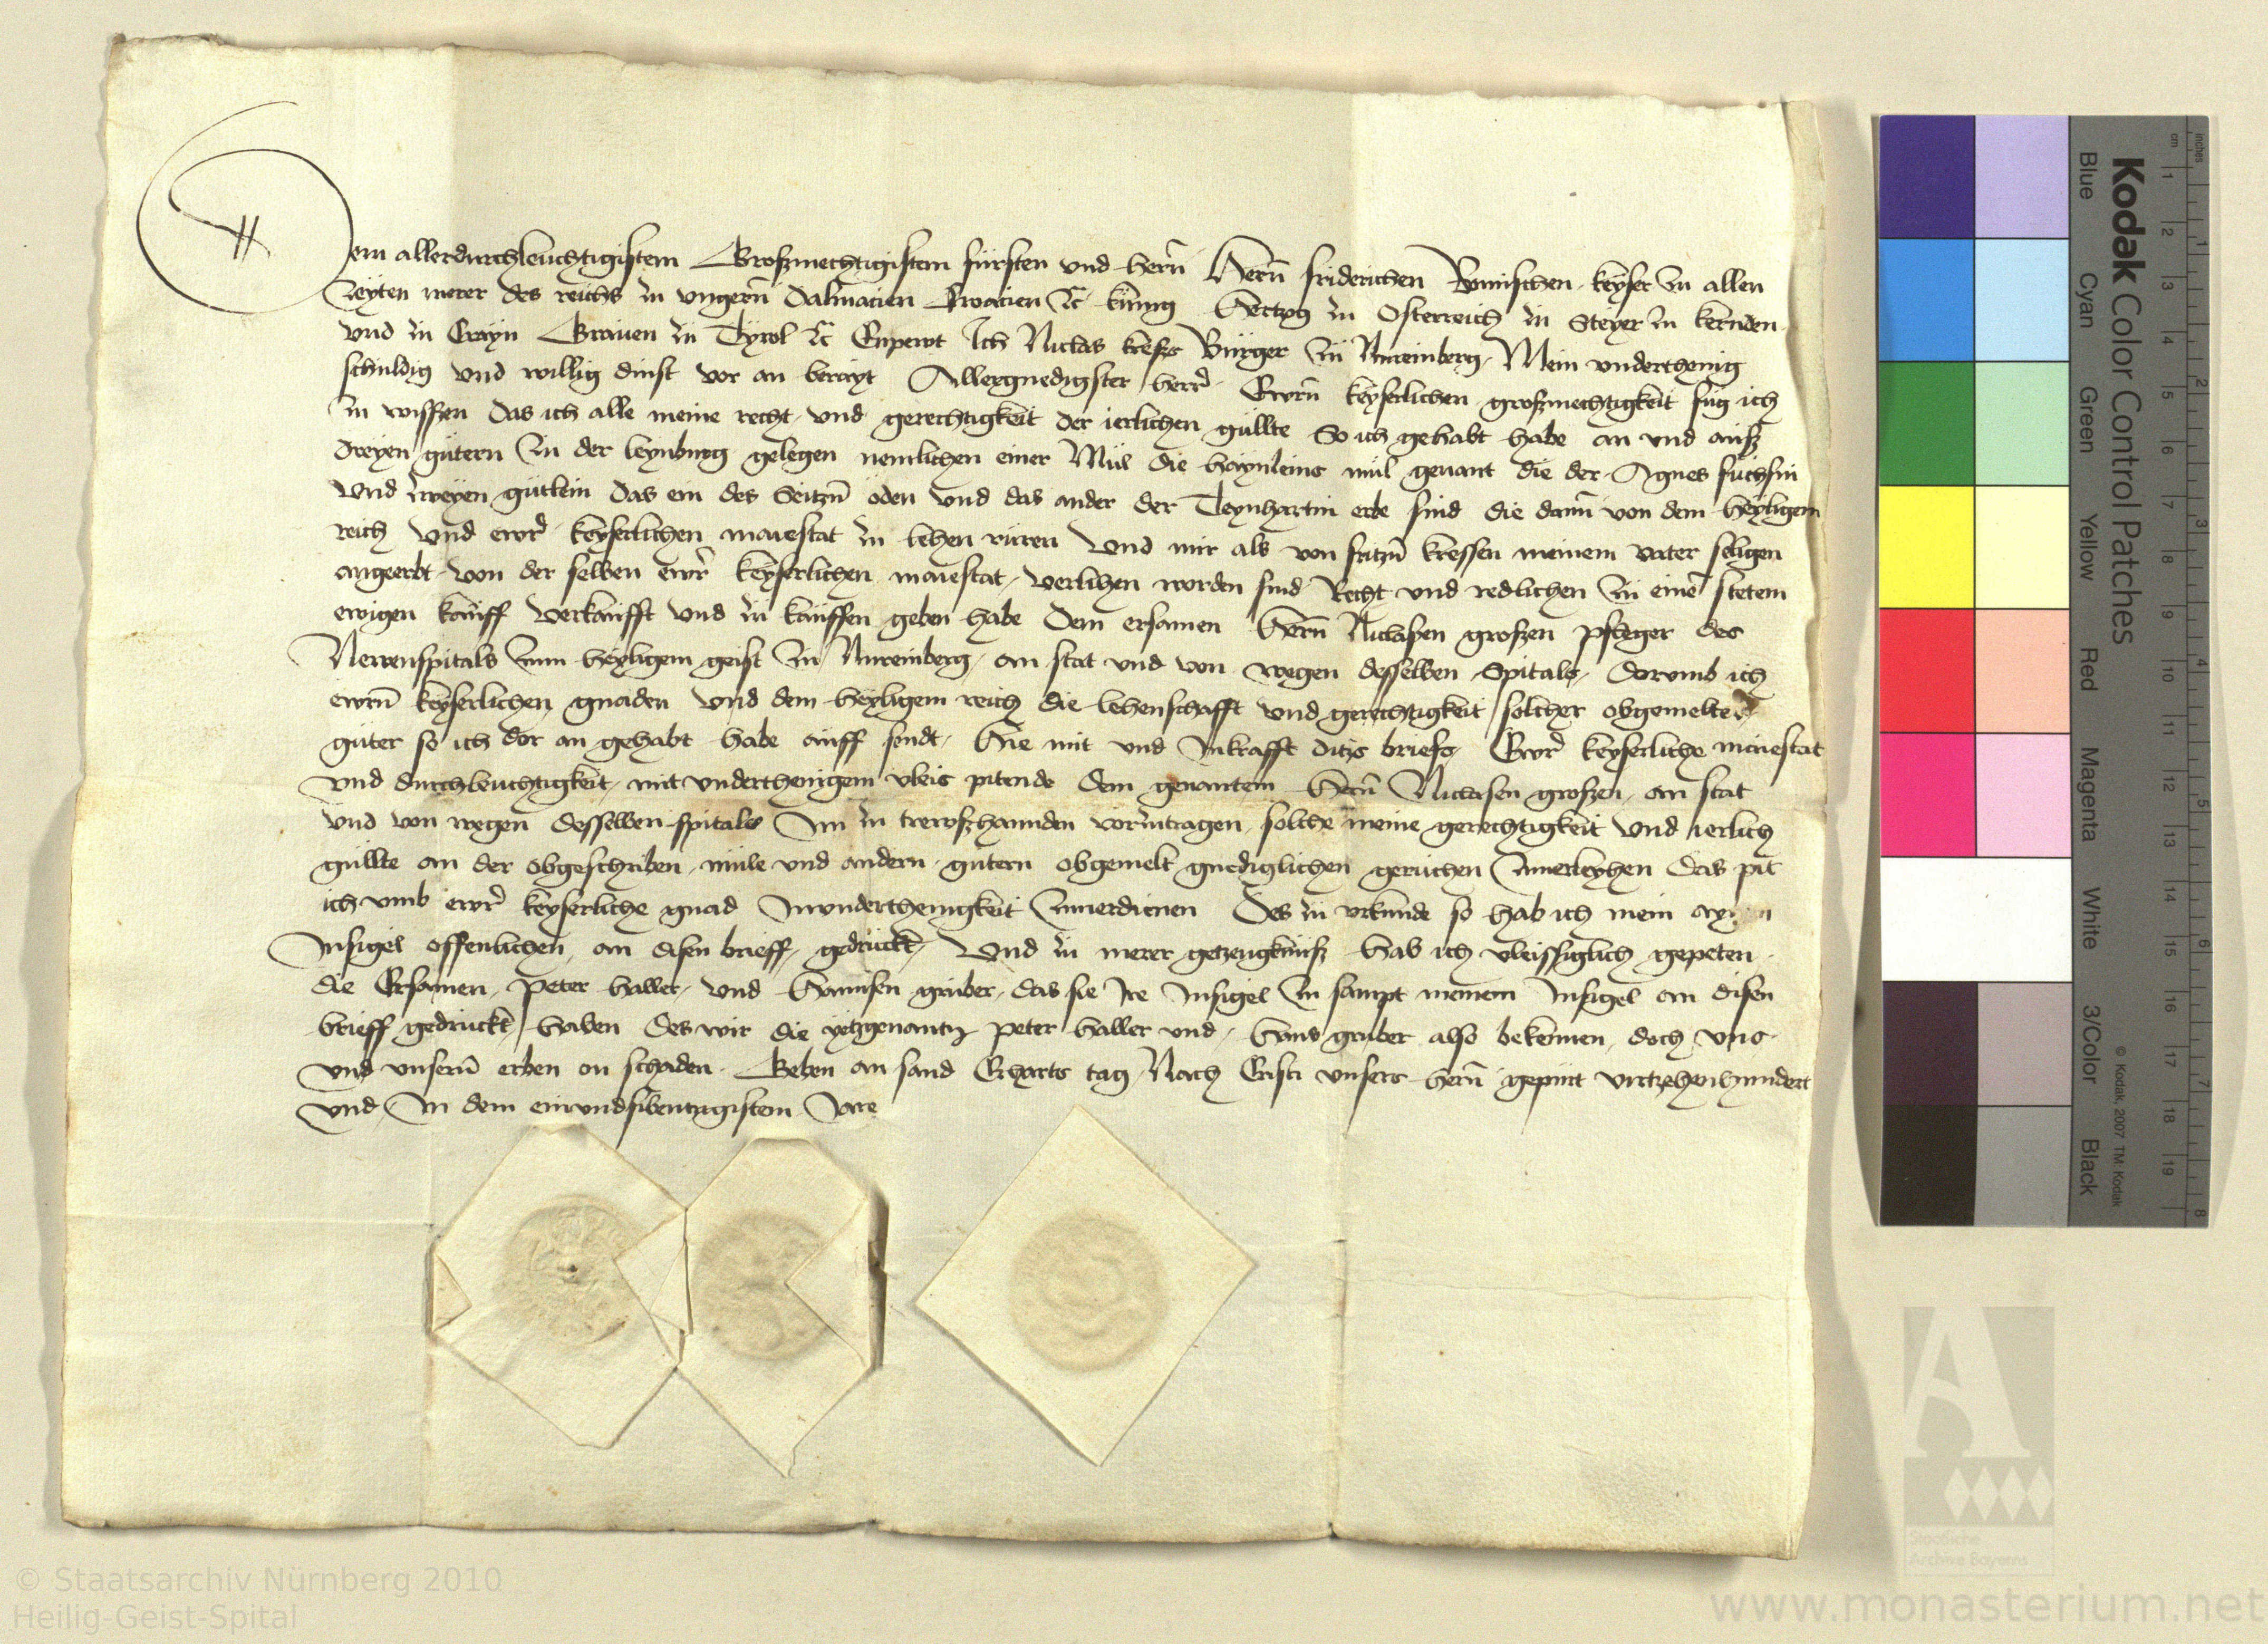 Dem allerdurchleuchtigistem Großmechtigistem fürsten vnd herñ Herñ friderichen Romischen keyser zu allen
Zeyten merer des reichs zu vngerñ Dalmacien Croacien ꝛc künig Hertzog zu Osterreich zu Steyer zu kernden
vnd zu Crayn Grauen zu Tyrol ꝛc Enpewt Ich Niclas kreß Burger zu Nuremberg Mein vnderthenig
schuldig vnd willig dinst vor an berayt Allergnedigster herr Ewrñ keyserlichen großmechtigkeit fug ich
zu wissen das ich alle meine recht vnd gerechtigkeit der ierlichen güllte So ich gehabt habe an vnd auß
dreyen gütern zu der leynburg gelegen nemlichen einer Mül die haynleins mül genant die der Agnes füchsin
vnd zweyen gütlein das ein des Seitzñ öden vnd das ander der Teynhartin erbe sind die dann von dem heyligem
reich vnd ewr keyserlichen maiestat zu lehen rüren vnd mir als von fritzñ kressen meinem vater seligen
angeerbt von der selben ewr keyserlichen maiestat verlihen worden sind Recht vnd redlichen zu eine stetem
ewigen kauff verkaufft vnd zu kauffen geben habe Dem ersamen Herñ Niclasen großen pfleger des
Newenspitals zum heyligem geist zu Nuremberg an stat vnd von wegen desselben Spitals Dorumb ich
ewrñ keyserlichen gnaden vnd dem heyligem reich die lehenschafft vnd gerechtigkeit solcher obgemelter
güter so ich dor an gehabt habe auff sendt Hie mit vnd Inkrafft ditz briefs Ewr keyserliche maiestat
vnd durchleuchtigkeit mit vnderthenigem vleis pitende dem genantem Herñ Niclasen großen an stat
vnd von wegen desselben spitals Im zu trewßhannden vorzutragen solche meine gerechtigkeit vnd ierlich
güllte an der obgeschriben müle vnd andern gütern obgemelt gnediglichen geruchen zuuerleyhen das pit
ich vmb ewr keyserliche gnad Invnderthenigkeit zuuerdienen Des zu vrkunde so hab ich mein
Insigel offenlichen an disen brieff gedrückt Vnd zu merer getzeugknüß hab ich vleissiglich gepeten
die Ersamen Peter haller vnd Hannsen gruber das sie Ire Insigel zu sampt meinem Insigel an disen
brieff gedruckt haben des wir die yetzgenantn peter haller vnd Hans gruber also bekennen doch vns
vnd vnserñ erben on schaden Geben an sand Erharts tag Nach Cristi vnsers herñ gepurt virtzehenhundert
vnd In dem einvndsibentzigistem Jare
Kodak Color Control Patches
© Kodak, 2007 TM: Kodak
Blue Cyan Green Yellow Red Magenta White 3/Color Black
inches 1 2 3 4 5 6 7 8
cm 1 2 3 4 5 6 7 8 9 10 11 12 13 14 15 16 17 18 19
Staatliche
Archive Bayerns
© Staatsarchiv Nürnberg 2010
Heilig-Geist-Spital
www.monasterium.net